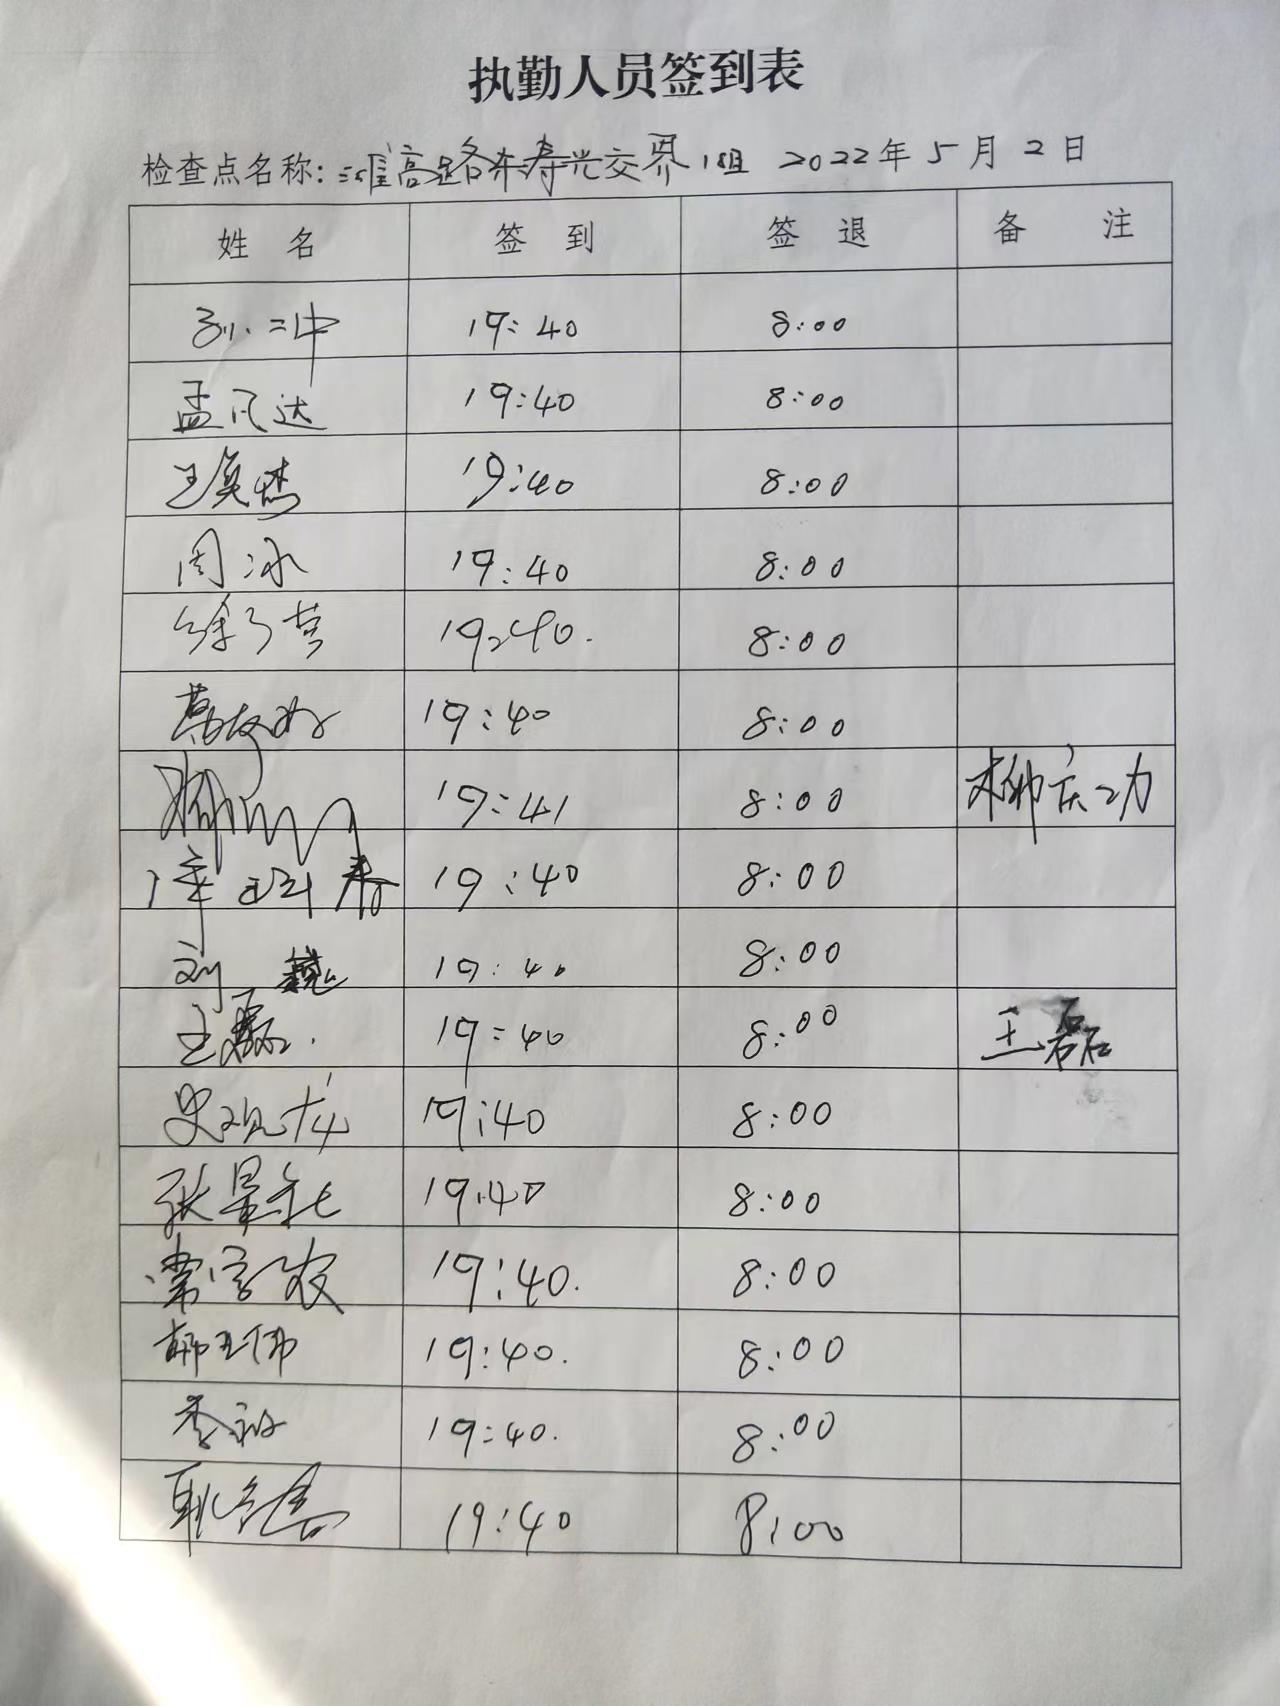 执勤人员签到表
检查点名称: 潍高路东寿光交界1组 2022年5月2日
姓 名 签 到 签 退 备 注
19:40 8:00
孟凡达 19:40 8:00
19:40 8:00
周冰 19:40 8:00
19:40 8:00
19:40 8:00
19:41 8:00 柳庆功
19:40 8:00
刘 19:40 8:00
王磊 19:40 8:00 王磊
史观龙 19:40 8:00
张 19:40 8:00
常 19:40. 8:00
韩玉伟 19:40. 8:00
19:40. 8:00
耿 19:40 8:00